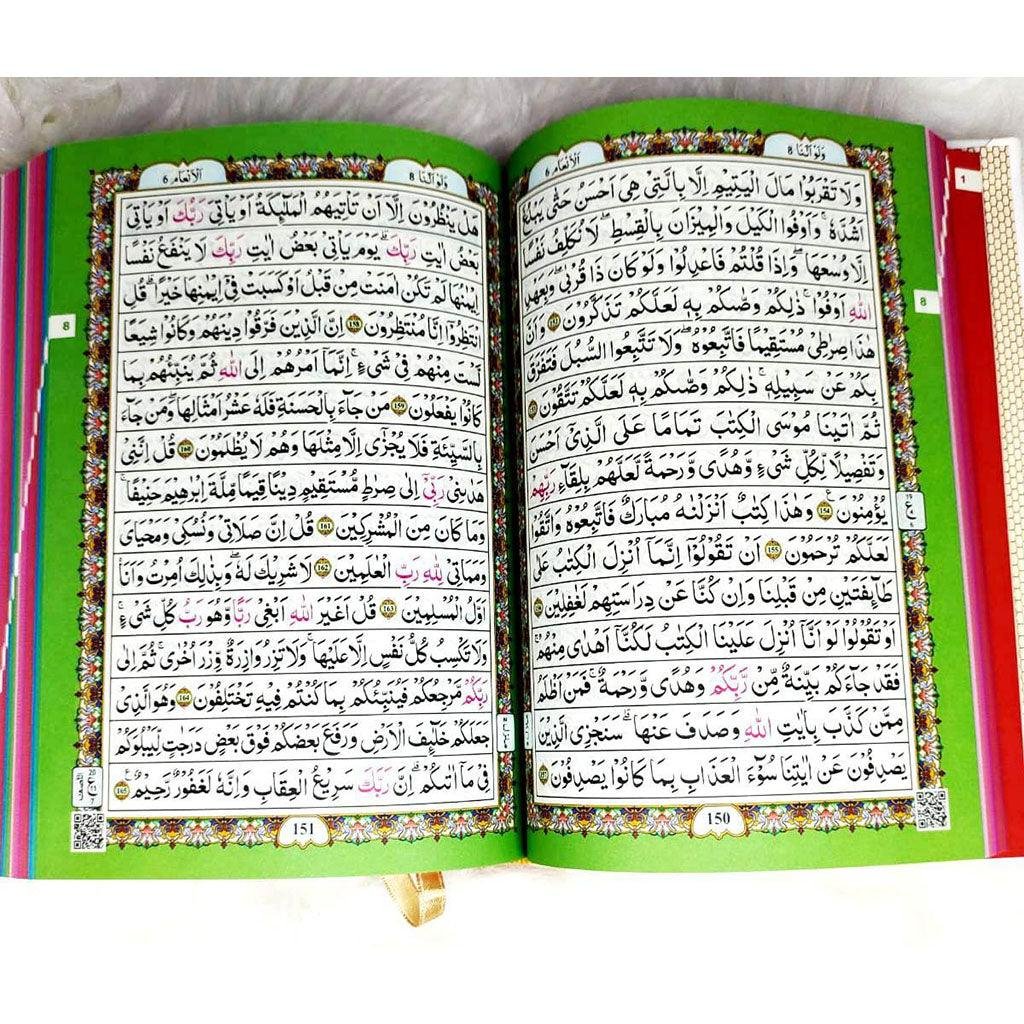 وَلَوْ اَنَّنَا 8
اَلْاَنْعَام 6
وَلَا تَقْرَبُوْا مَالَ الْيَتِيْمِ اِلَّا بِالَّتِيْ هِيَ اَحْسَنُ حَتّٰى يَبْلُغَ
اَشُدَّهٗ ۚ وَاَوْفُوا الْكَيْلَ وَالْمِيْزَانَ بِالْقِسْطِ ۚ لَا نُكَلِّفُ نَفْسًا
اِلَّا وُسْعَهَا ۚ وَاِذَا قُلْتُمْ فَاعْدِلُوْا وَلَوْ كَانَ ذَا قُرْبٰى ۚ وَبِعَهْدِ
اللّٰهِ اَوْفُوْا ؕ ذٰلِكُمْ وَصّٰىكُمْ بِهٖ لَعَلَّكُمْ تَذَكَّرُوْنَ 152 وَاَنَّ
هٰذَا صِرَاطِيْ مُسْتَقِيْمًا فَاتَّبِعُوْهُ ۚ وَلَا تَتَّبِعُوا السُّبُلَ فَتَفَرَّقَ
بِكُمْ عَنْ سَبِيْلِهٖ ؕ ذٰلِكُمْ وَصّٰىكُمْ بِهٖ لَعَلَّكُمْ تَتَّقُوْنَ 153
ثُمَّ اٰتَيْنَا مُوْسَى الْكِتٰبَ تَمَامًا عَلَى الَّذِيْٓ اَحْسَنَ
وَتَفْصِيْلًا لِّكُلِّ شَيْءٍ وَّهُدًى وَّرَحْمَةً لَّعَلَّهُمْ بِلِقَآءِ رَبِّهِمْ
يُؤْمِنُوْنَ 154 وَهٰذَا كِتٰبٌ اَنْزَلْنٰهُ مُبٰرَكٌ فَاتَّبِعُوْهُ وَاتَّقُوْا
لَعَلَّكُمْ تُرْحَمُوْنَ 155 اَنْ تَقُوْلُوْٓا اِنَّمَآ اُنْزِلَ الْكِتٰبُ عَلٰى
طَآئِفَتَيْنِ مِنْ قَبْلِنَا وَاِنْ كُنَّا عَنْ دِرَاسَتِهِمْ لَغٰفِلِيْنَ 156
اَوْ تَقُوْلُوْا لَوْ اَنَّآ اُنْزِلَ عَلَيْنَا الْكِتٰبُ لَكُنَّآ اَهْدٰى مِنْهُمْ ۚ
فَقَدْ جَآءَكُمْ بَيِّنَةٌ مِّنْ رَّبِّكُمْ وَهُدًى وَّرَحْمَةٌ ۚ فَمَنْ اَظْلَمُ
مِمَّنْ كَذَّبَ بِاٰيٰتِ اللّٰهِ وَصَدَفَ عَنْهَا ؕ سَنَجْزِي الَّذِيْنَ
يَصْدِفُوْنَ عَنْ اٰيٰتِنَا سُوْٓءَ الْعَذَابِ بِمَا كَانُوْا يَصْدِفُوْنَ 157
150
1
8
وَلَوْ اَنَّنَا 8
اَلْاَنْعَام 6
هَلْ يَنْظُرُوْنَ اِلَّآ اَنْ تَاْتِيَهُمُ الْمَلٰٓئِكَةُ اَوْ يَاْتِيَ رَبُّكَ اَوْ يَاْتِيَ
بَعْضُ اٰيٰتِ رَبِّكَ ؕ يَوْمَ يَاْتِيْ بَعْضُ اٰيٰتِ رَبِّكَ لَا يَنْفَعُ نَفْسًا
اِيْمَانُهَا لَمْ تَكُنْ اٰمَنَتْ مِنْ قَبْلُ اَوْ كَسَبَتْ فِيْٓ اِيْمَانِهَا خَيْرًا ؕ قُلِ
انْتَظِرُوْٓا اِنَّا مُنْتَظِرُوْنَ 158 اِنَّ الَّذِيْنَ فَرَّقُوْا دِيْنَهُمْ وَكَانُوْا شِيَعًا
لَّسْتَ مِنْهُمْ فِيْ شَيْءٍ ؕ اِنَّمَآ اَمْرُهُمْ اِلَى اللّٰهِ ثُمَّ يُنَبِّئُهُمْ بِمَا
كَانُوْا يَفْعَلُوْنَ 159 مَنْ جَآءَ بِالْحَسَنَةِ فَلَهٗ عَشْرُ اَمْثَالِهَا ۚ وَمَنْ جَآءَ
بِالسَّيِّئَةِ فَلَا يُجْزٰٓى اِلَّا مِثْلَهَا وَهُمْ لَا يُظْلَمُوْنَ 160 قُلْ اِنَّنِيْ
هَدٰىنِيْ رَبِّيْٓ اِلٰى صِرَاطٍ مُّسْتَقِيْمٍ دِيْنًا قِيَمًا مِّلَّةَ اِبْرٰهِيْمَ حَنِيْفًا ۚ
وَمَا كَانَ مِنَ الْمُشْرِكِيْنَ 161 قُلْ اِنَّ صَلَاتِيْ وَنُسُكِيْ وَمَحْيَايَ
وَمَمَاتِيْ لِلّٰهِ رَبِّ الْعٰلَمِيْنَ 162 لَا شَرِيْكَ لَهٗ ۚ وَبِذٰلِكَ اُمِرْتُ وَاَنَا
اَوَّلُ الْمُسْلِمِيْنَ 163 قُلْ اَغَيْرَ اللّٰهِ اَبْغِيْ رَبًّا وَّهُوَ رَبُّ كُلِّ شَيْءٍ ؕ
وَلَا تَكْسِبُ كُلُّ نَفْسٍ اِلَّا عَلَيْهَا ۚ وَلَا تَزِرُ وَازِرَةٌ وِّزْرَ اُخْرٰى ۚ ثُمَّ اِلٰى
رَبِّكُمْ مَّرْجِعُكُمْ فَيُنَبِّئُكُمْ بِمَا كُنْتُمْ فِيْهِ تَخْتَلِفُوْنَ 164 وَهُوَ الَّذِيْ
جَعَلَكُمْ خَلٰٓئِفَ الْاَرْضِ وَرَفَعَ بَعْضَكُمْ فَوْقَ بَعْضٍ دَرَجٰتٍ لِّيَبْلُوَكُمْ
فِيْ مَآ اٰتٰىكُمْ ؕ اِنَّ رَبَّكَ سَرِيْعُ الْعِقَابِ وَاِنَّهٗ لَغَفُوْرٌ رَّحِيْمٌ 165
151
8